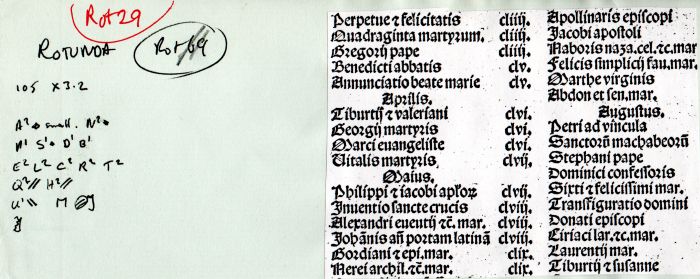 Rot 29
ROTUNDA
Rot 69
105 x 3.2
A² small. N²
M¹ S¹ D¹ B¹
E² L² C² R² T²
Q²// H²//
U¹\\ M
Perpetue ⁊ felicitatis cliiij.
Quadraginta martyrum. cliiij.
Gregorij pape cliiij.
Benedicti abbatis clv.
Annunciatio beate marie clv.
Aprilis.
Tiburtij ⁊ valeriani clv.
Georgij martyris clvi.
Marci euangeliste clvi.
Uitalis martyris clvij.
Maius.
Philippi ⁊ iacobi apl'oꝝ clvij.
Inuentio sancte crucis clviij.
Alexandri euentij ⁊c̄. mar. clviij.
Joh̄anis an̄ portam latinā clviij.
Gordiani ⁊ epi. mar. clix.
Nerei archil.⁊c̄. mar. clix.
Apollinaris episcopi
Jacobi apostoli
Naboris naza.cel.⁊c.mar
Felicis simplicij fau.mar.
Marthe virginis
Abdon et sen.mar.
Augustus.
Petri ad vincula
Sanctorū machabeorū
Stephani pape
Dominici confessoris
Sixti ⁊ felicissimi mar.
Transfiguratio domini
Donati episcopi
Ciriaci lar.⁊c.mar.
Laurentij mar.
Tiburtij ⁊ susanne